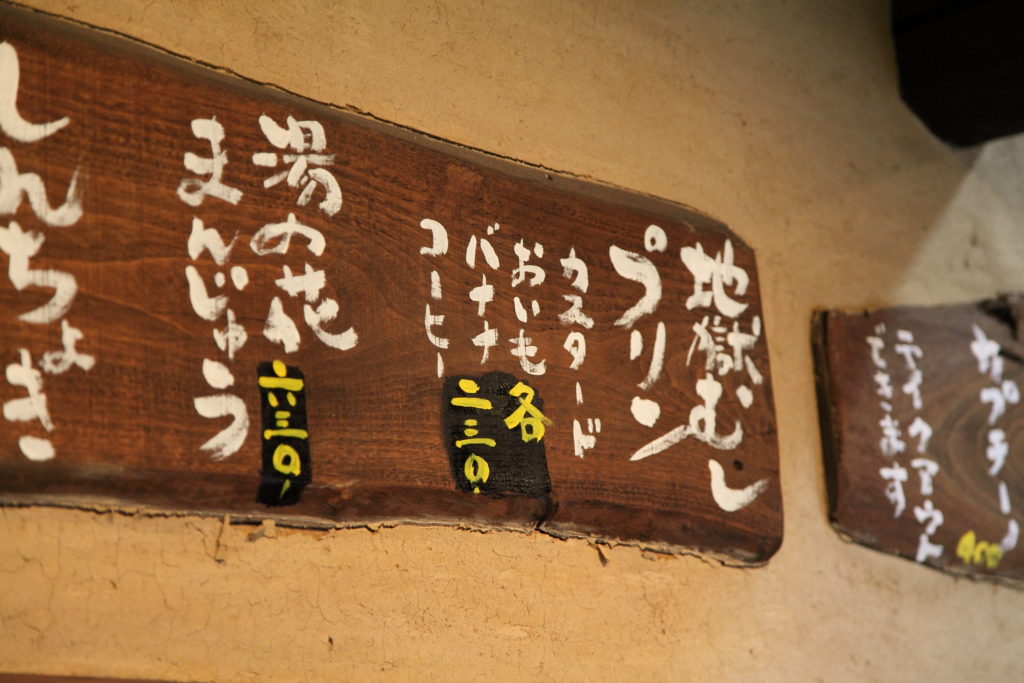 地獄むし
プリン
カスタード
おいも
バナナ
コーヒー
各
二三〇
湯の花
まんじゅう
六三〇
しんちょき
テイクアウト
できます
400